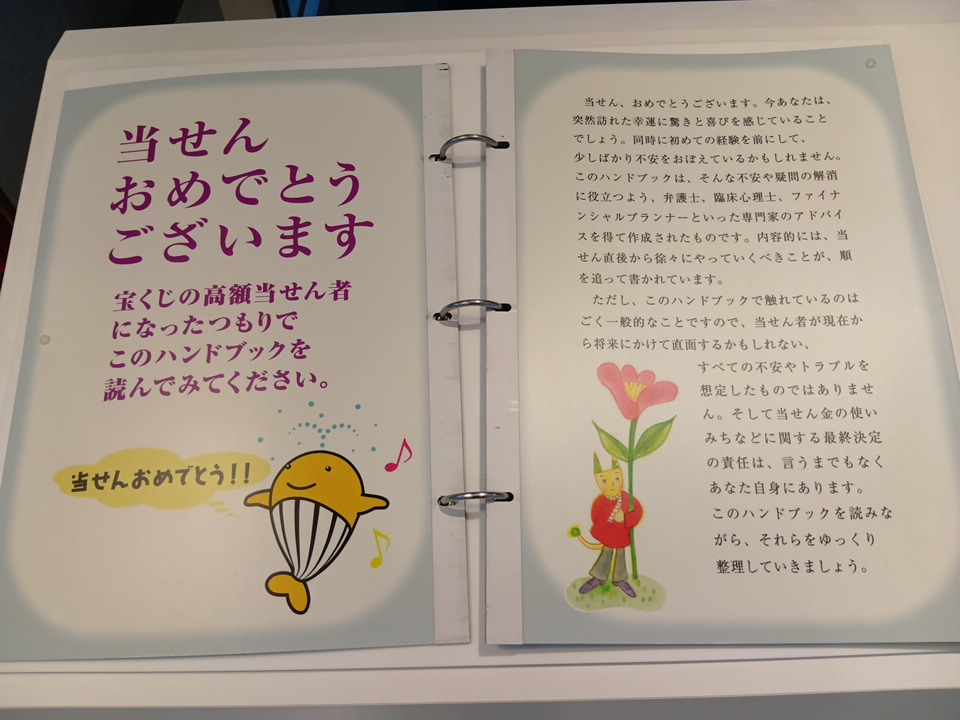 当せん
おめでとう
ございます
宝くじの高額当せん者
になったつもりで
このハンドブックを
読んでみてください。
当せんおめでとう!!
当せん、おめでとうございます。今あなたは、
突然訪れた幸運に驚きと喜びを感じていること
でしょう。同時に初めての経験を前にして、
少しばかり不安をおぼえているかもしれません。
このハンドブックは、そんな不安や疑問の解消
に役立つよう、弁護士、臨床心理士、ファイナ
ンシャルプランナーといった専門家のアドバイ
スを得て作成されたものです。内容的には、当
せん直後から徐々にやっていくべきことが、順
を追って書かれています。
ただし、このハンドブックで触れているのは
ごく一般的なことですので、当せん者が現在か
ら将来にかけて直面するかもしれない、
すべての不安やトラブルを
想定したものではありませ
ん。そして当せん金の使い
みちなどに関する最終決定
の責任は、言うまでもなく
あなた自身にあります。
このハンドブックを読みな
がら、それらをゆっくり
整理していきましょう。